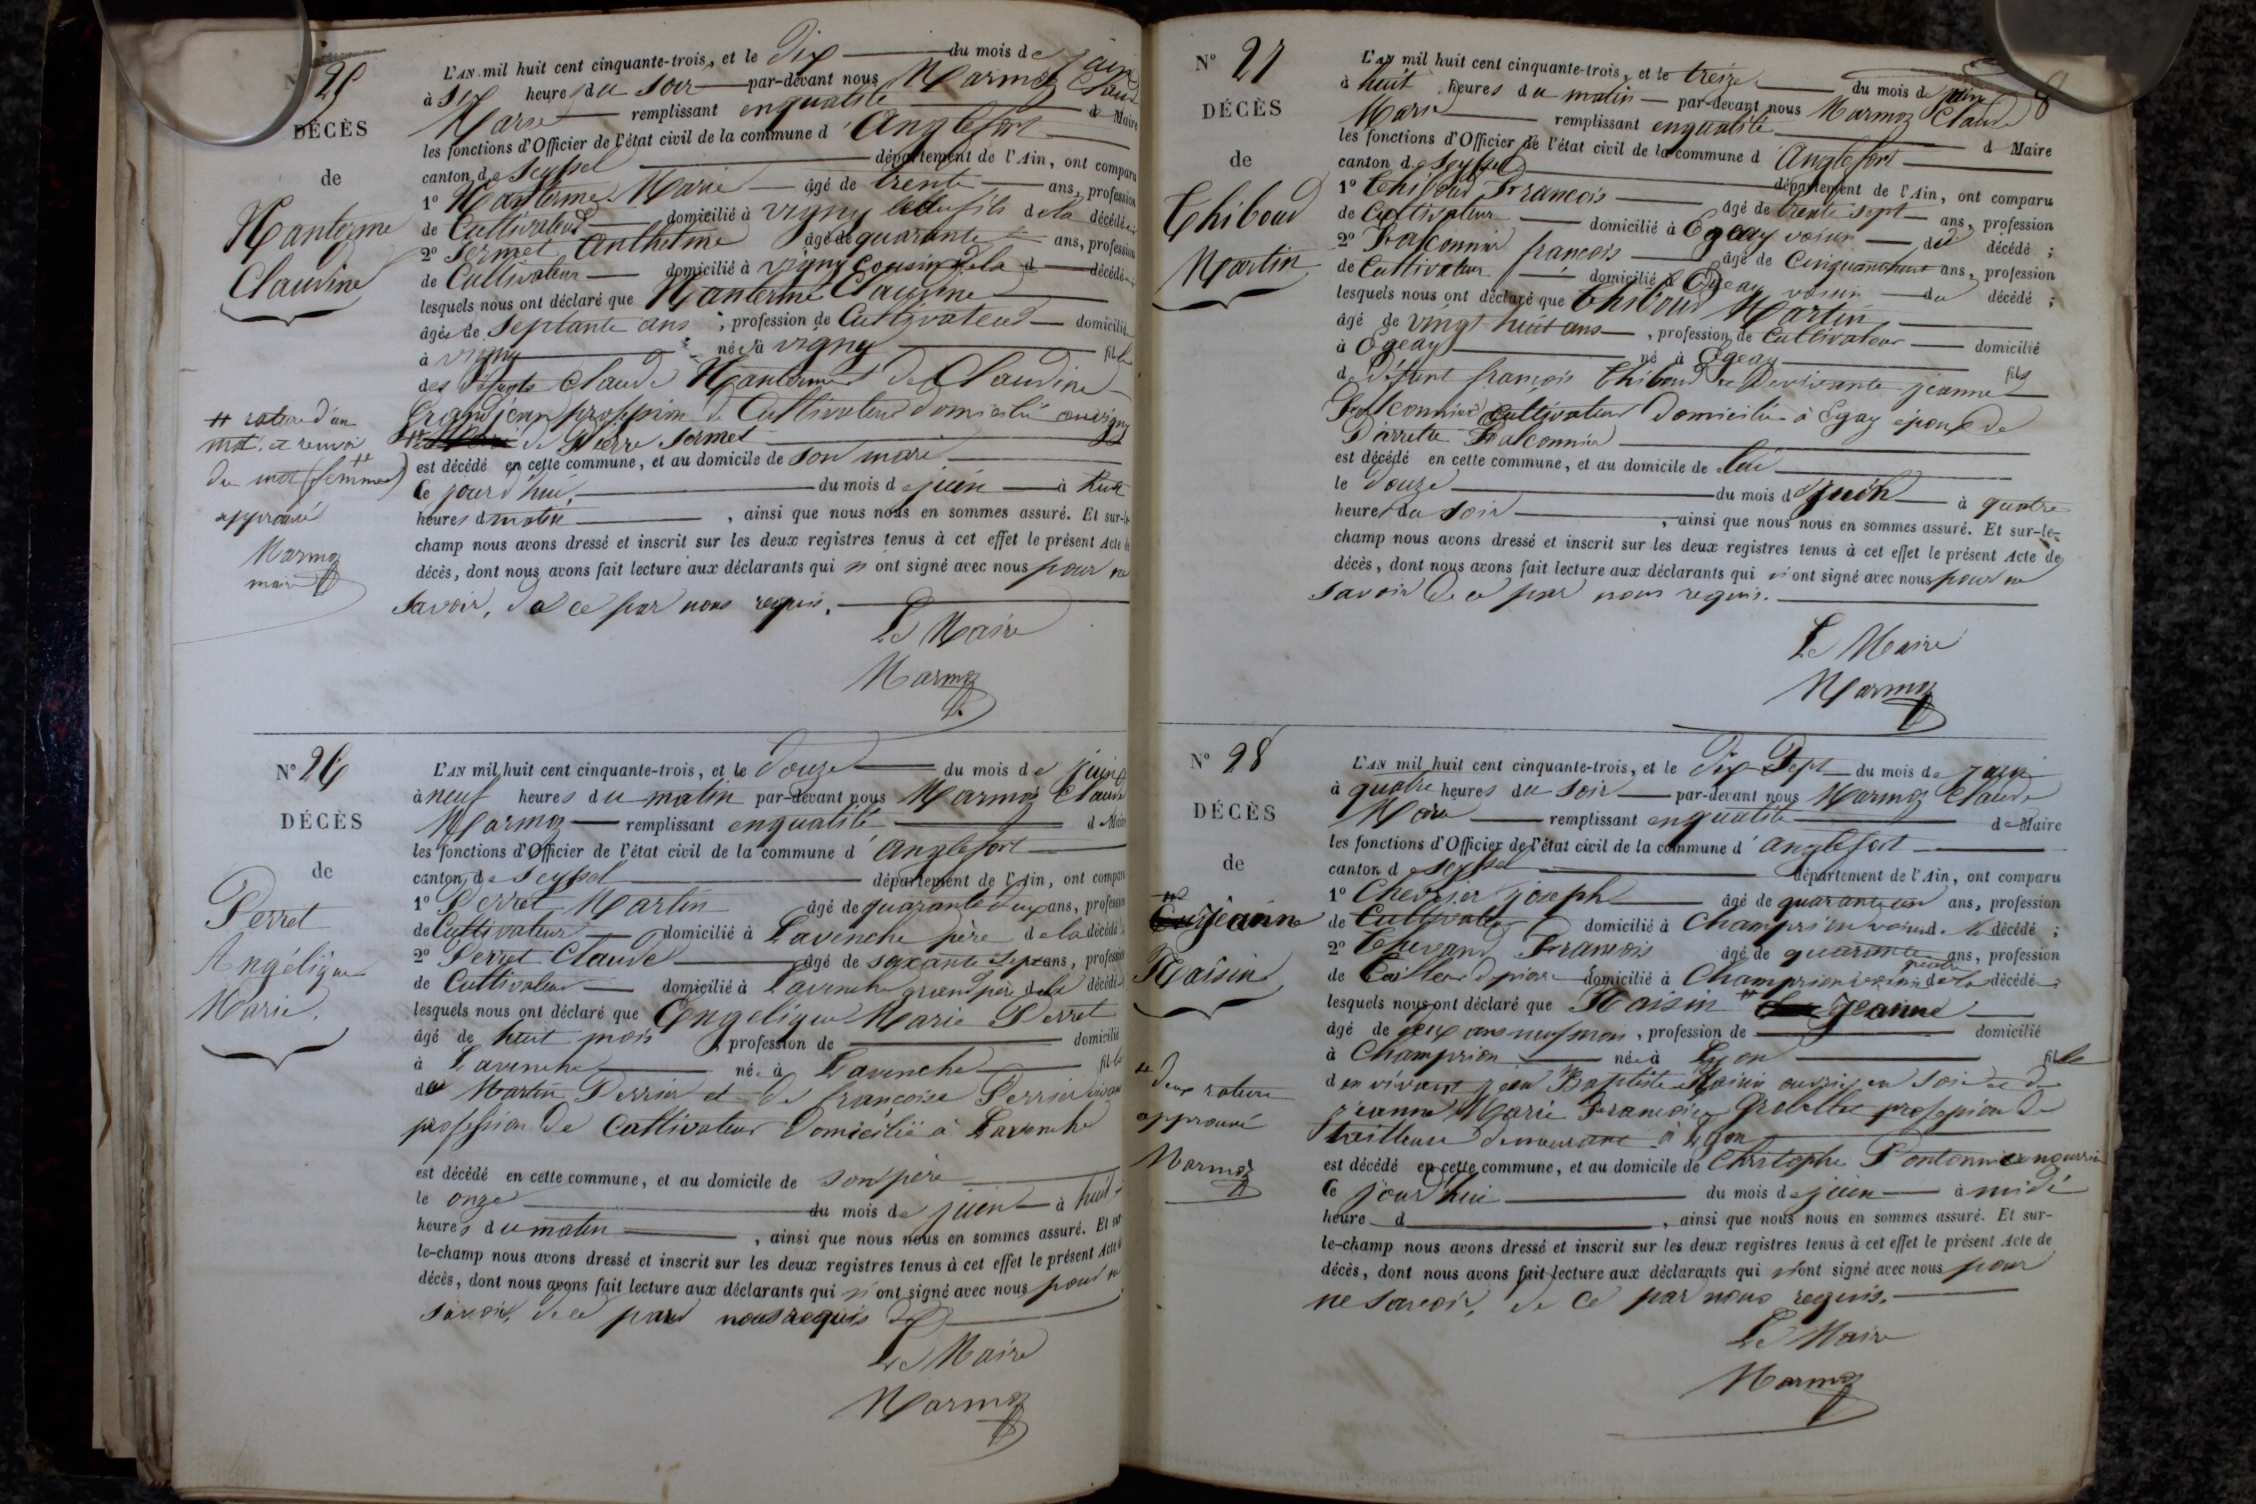 N° 25
DÉCÈS
de
Manterme
Claudine
rature d'un
mot et renvoi
du mot (femme)
approuvé
Marmoz
maire
L'AN mil huit cent cinquante-trois, et le Dix du mois de juin
à six heures du soir par-devant nous Marmoz Claude
Marie remplissant en qualité de Maire
les fonctions d'Officier de l'état civil de la commune d'Anglefort
canton de Seyssel département de l'Ain, ont comparu
1° Manterme Marie âgé de trente ans, profession
de Cultivateur domicilié à Vigny fils de la décédée
2° Sermet Anthelme âgé de quarante ans, profession
de Cultivateur domicilié à Vigny Cousin de la décédée
lesquels nous ont déclaré que Manterme Claudine
âgée de septante ans, profession de Cultivateur domicilié
à Vigny née à Vigny fille
des défunts Claude Manterme et de Claudine
Grandjean profession de Cultivateur domicilié au Vigny
de Pierre Sermet
est décédé en cette commune, et au domicile de son mari
le jourd'hui du mois de juin à huit
heures du matin, ainsi que nous nous en sommes assuré. Et sur-le-
champ nous avons dressé et inscrit sur les deux registres tenus à cet effet le présent Acte de
décès, dont nous avons fait lecture aux déclarants qui n'ont signé avec nous pour ne
savoir, de ce par nous requis.
Le Maire
Marmoz
N° 26
DÉCÈS
de
Perret
Angélique
Marie.
L'AN mil huit cent cinquante-trois, et le douze du mois de juin
à neuf heures du matin par-devant nous Marmoz Claude
Marmoz remplissant en qualité de Maire
les fonctions d'Officier de l'état civil de la commune d'Anglefort
canton de Seyssel département de l'Ain, ont comparu
1° Perret Martin âgé de quarante deux ans, profession
de Cultivateur domicilié à Lavenche père de la décédée
2° Perret Claude âgé de soxante sept ans, profession
de Cultivateur domicilié à Lavenche grand père de la décédée
lesquels nous ont déclaré que Angélique Marie Perret
âgé de huit mois, profession de domicilié
à Lavenche née à Lavenche fille
de Martin Perrier et de françoise Perrier
profession de Cultivateur Domicilié à Lavenche
est décédé en cette commune, et au domicile de son père
le onze du mois de juin à huit
heures du matin, ainsi que nous nous en sommes assuré. Et sur
le-champ nous avons dressé et inscrit sur les deux registres tenus à cet effet le présent Acte de
décès, dont nous avons fait lecture aux déclarants qui n'ont signé avec nous pour ne
savoir, de ce par nous requis
Le Maire
Marmoz
8
N° 27
DÉCÈS
de
Thiboud
Martin
L'AN mil huit cent cinquante-trois, et le treize du mois de juin
à huit heures du matin par-devant nous Marmoz Claude
Marie remplissant en qualité de Maire
les fonctions d'Officier de l'état civil de la commune d'Anglefort
canton de Seyssel département de l'Ain, ont comparu
1° Thiboud François âgé de trente sept ans, profession
de Cultivateur domicilié à Egeay voisin du décédé;
2° Falconnier françois âgé de Cinquante ans, profession
de Cultivateur domicilié à Egeay voisin du décédé;
lesquels nous ont déclaré que Thiboud Martin
âgé de vingt huit ans, profession de Cultivateur domicilié
à Egeay né à Egeay fils
de défunt françois Thiboud et de vivante jeanne
Falconnier Cultivateur Domicilié à Egay époux de
Pierrette Falconnier
est décédé en cette commune, et au domicile de lui
le douze du mois de juin à quatre
heures du soir, ainsi que nous nous en sommes assuré. Et sur-le-
champ nous avons dressé et inscrit sur les deux registres tenus à cet effet le présent Acte de
décès, dont nous avons fait lecture aux déclarants qui n'ont signé avec nous pour ne
savoir de ce par nous requis.
Le Maire
Marmoz
N° 28
DÉCÈS
de
Jeanne
Raisin
deux rature
approuvé
Marmoz
L'AN mil huit cent cinquante-trois, et le Dix Sept du mois de juin
à quatre heures du soir par-devant nous Marmoz Claude
Marie remplissant en qualité de Maire
les fonctions d'Officier de l'état civil de la commune d'Anglefort
canton de Seyssel département de l'Ain, ont comparu
1° Chevrier joseph âgé de quarante un ans, profession
de Cultivateur domicilié à Champrion voisin de la décédé;
2° Thevand Francois âgé de quarante ans, profession
de Tailleur de pierre domicilié à Champrion voisin de la décédé;
lesquels nous ont déclaré que Raisin Jeanne
âgé de deux ans neuf mois, profession de domicilié
à Champrion née à Lyon fille
de vivant jean Baptiste Raisin ouvrier en soie et de
jeanne Marie Françoise profession de
tailleuse demeurant à Lyon
est décédé en cette commune, et au domicile de Christophe Pontonnier
le jourd'hui du mois de juin à midi
heure d, ainsi que nous nous en sommes assuré. Et sur-
le-champ nous avons dressé et inscrit sur les deux registres tenus à cet effet le présent Acte de
décès, dont nous avons fait lecture aux déclarants qui n'ont signé avec nous pour
ne savoir, de ce par nous requis.
Le Maire
Marmoz